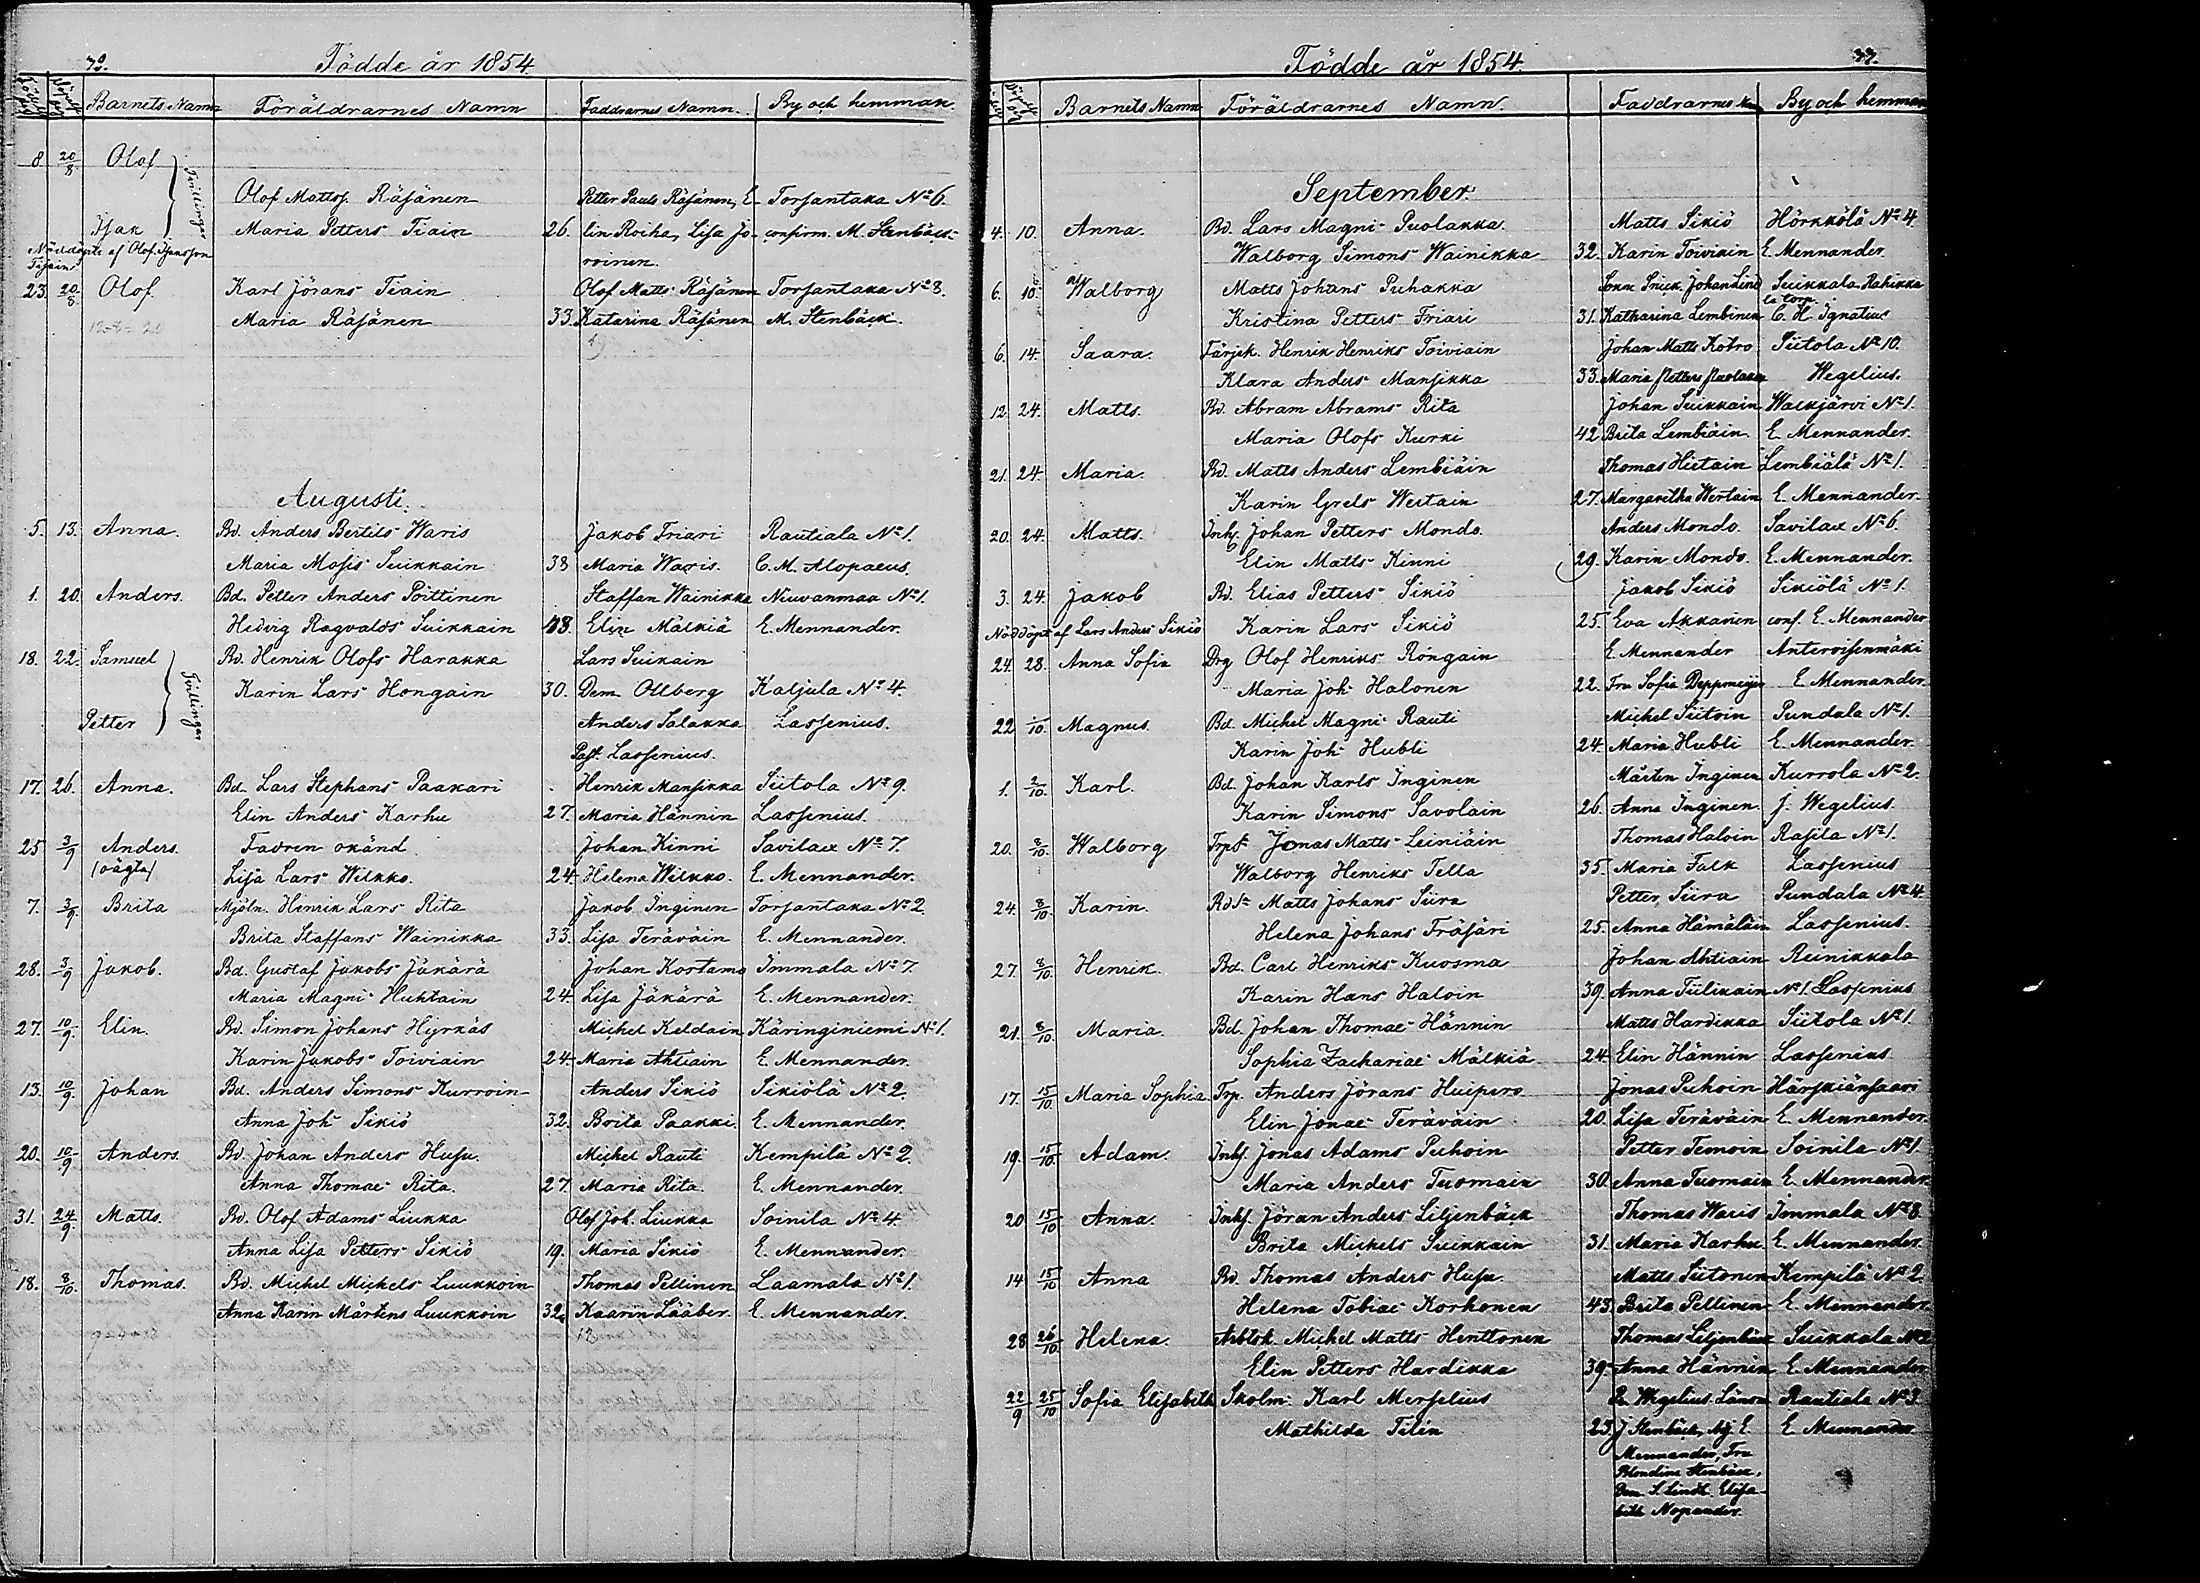 Födde år 1854
Barnets Namn Föräldrarnes Namn Faddrarnes Namn. By och hemman
8 20/8 Olof
Tvillingar
Olof Matts Räsänen Petter Pauls Räsänen, E- Torsantaka No 6.
Isak Maria Petters Tiain 26. lin Roiha, Lisa Jo- confirm. M. Stenbäck
Nöddöpte af Olof roinen.
23. 20/8 Olof. Karl Jörans Tiain Olof Matts Räsänen Torsantaka No 8.
Maria Räsänen 33. Katarina Räsänen M. Stenbäck.
Augusti.
5. 13. Anna. Bd. Anders Bertils Waris Jakob Friari Rautiala No 1.
Maria Mosis Suikkain 38 Maria Waris. C. M. Alopaeus.
1. 20. Anders. Bd. Petter Anders Pöittinen Staffan Wainikka Niuvanmaa No 1.
Hedvig Ragvalds Suikkain 48. Elin Mälkiä E. Mennander.
18. 22. Samuel Bd. Henrik Olofs Harakka Lars Suikain
Tvilingar
Karin Lars Hongain 30. Dem Ollberg Kaljula No 4.
Petter Anders Salakka Lassenius.
Past. Lassenius.
17. 26. Anna. Bd. Lars Stephans Paakari Henrik Mansikka Siitola No 9.
Elin Anders Karhu 27. Maria Hännin Lassenius.
25 3/9 Anders. Fadren okänd Johan Kinni Savilax No 7.
(oägta) Lisa Lars Wilkko. 24. Helena Wilkko. E. Mennander.
7. 3/9 Brita Mjöln. Henrik Lars Rita Jakob Inginen Torsantaka No 2
Brita Staffans Wainikka 33. Lisa Teräväin E. Mennander.
28. 3/9 Jakob. Bd. Gustaf Jakobs Jäkärä Johan Kostamo Immala No 7.
Maria Magni Huhtain 24. Lisa Jäkärä E. Mennander.
27. 10/9 Elin. Bd. Simon Johans Hyrkäs Michel Keldain Käringiniemi No 1.
Karin Jakobs Toiviain 24. Maria Ahtiain E. Mennander.
13. 10/9 Johan Bd. Anders Simons Kurroin Anders Sikiö Sikiölä No 2.
Anna Joh Sikiö 32. Brita Paakki E. Mennander.
20. 10/9 Anders. Bd. Johan Anders Husu. Michel Rauti Kempilä No 2.
Anna Thomae Rita. 27. Maria Rita. E. Mennander.
31. 24/9 Matts. Bd. Olof Adams Liukka Olof Joh. Liukka Soinila No 4.
Anna Lisa Petters Sikiö 19. Maria Sikiö E. Mennander.
18. 8/10 Thomas. Bd. Michel Michels Luukkoin Thomas Pellinen Laamala No 1.
Anna Karin Mårtens Luukkoin 32. Kaarin Lääber E. Mennander.
Födde år 1854. 33.
Barnets Namn Föräldrarnes Namn. Faddrarnes Nam By och hemman
September.
4. 10. Anna. Bd. Lars Magni Puolakka. Matts Sikiö Hörkkölä No 4
Walborg Simons Wainikka 32. Karin Toiviain E. Mennander.
6. 10. Walborg Matts Johans Puhakka Johan Lind Suikkala Rahikka
la torp.
Kristina Petters Friari 31. Katharina Lembinen C. H. Ignatius
6. 14. Saara. Färjek. Henrik Henriks Toiviain Johan Matts Kobro Siitola No 10.
Klara Anders Mansikka 33. Maria Petters Puolakka Wegelius.
12. 24. Matts. Bd. Abram Abrams Rita Johan Suikkain Walkjärvi No 1.
Maria Olofs Kurki 42 Brita Lembiäin. E. Mennander.
21. 24. Maria. Bd. Matts Anders Lembiäin Thomas Hietain Lembiälä No 1.
Karin Grels Wertain 27. Margaretha Wertain E. Mennander.
20. 24. Matts. Inhs. Johan Petters Mondo. Anders Mondo. Savilax No 6.
Elin Matts Kinni 29. Karin Mondo. E. Mennander.
3. 24. Jakob Bd. Elias Petters Sikiö Jakob Sikiö Sikiölä No 1.
Nöddöpt af Lars Anders Sikiö Karin Lars Sikiö 25. Eva Akkanen conf. E. Mennander
24. 28. Anna Sofia Drg Olof Henriks Rongain E. Mennander Anteroisenmäki
Maria Joh Halonen 22. Fru Sofia Deppmeijer E. Mennander.
22 1/10. Magnus. Bd. Michel Magni Rauti Michel Siitoin Pundala No 1.
Karin Joh Hubli 24. Maria Hubli E. Mennander.
1. 2/10. Karl. Bd. Johan Karls Inginen Mårten Inginen Kurrola No 2.
Karin Simons Savolain 26. Anna Inginen J. Wegelius.
20. 8/10. Walborg Trpst Jonas Matts Leiniäin Thomas Haloin Rasila No 1.
Walborg Henriks Tella 35. Maria Falk Lassenius
24. 8/10. Karin. Matts Johans Siira Petter Siira Pundala No 4.
Helena Johans Fräsäri 25. Anna Hämäläin Lassenius.
27. 8/10 Henrik. Bd. Carl Henriks Kuosma Johan Ahtiain Reinikkala
Karin Hans Haloin 39. Anna Tiilikain No 1. Lassenius
21. 8/10. Maria. Bd. Johan Thomae Hännin Matts Hardikka Siitola No 1.
Sophia Zachariae Mälkiä 24. Elin Hännin Lassenius
17. 15/10. Maria Sophia. Trp. Anders Jörans Huipero Jonas Puhoin Härskiänsaari
Elin Jonae Teräväin 20. Lisa Teräväin E. Mennander.
19. 15/10. Adam. Inhs. Jonas Adams Puhoin Petter Temoin Soinila No 1.
Maria Anders Tuomain 30. Anna Tuomain E. Mennander.
20 15/10 Anna. Inhs. Jöran Anders Liljenbäck Thomas Waris Immala No 8.
Brita Michels Suikkain 31. Maria Karhu E. Mennander.
14 15/10 Anna Bd. Thomas Anders Husu. Matts Siitonen Kempilä No 2.
Helena Tobiae Korhonen 43. Brita Pellinen E. Mennander.
28 26/10. Helena. Michel Matts Henttonen Thomas Liljenbäck Suikkala No 2
Elin Petters Hardikka 39. Anna Hännin E. Mennander
22/9 25/10 Sofia Elisabeth Skolm. Karl Merselius Wegelius. Rautiala No 3.
Mathilda Tilén 23. J Stenbäck, E. E. Mennander
Mennander, Fru
Blondine Stenbäck,
Dem. S. Lindh. Elisa-
beth Nopander.